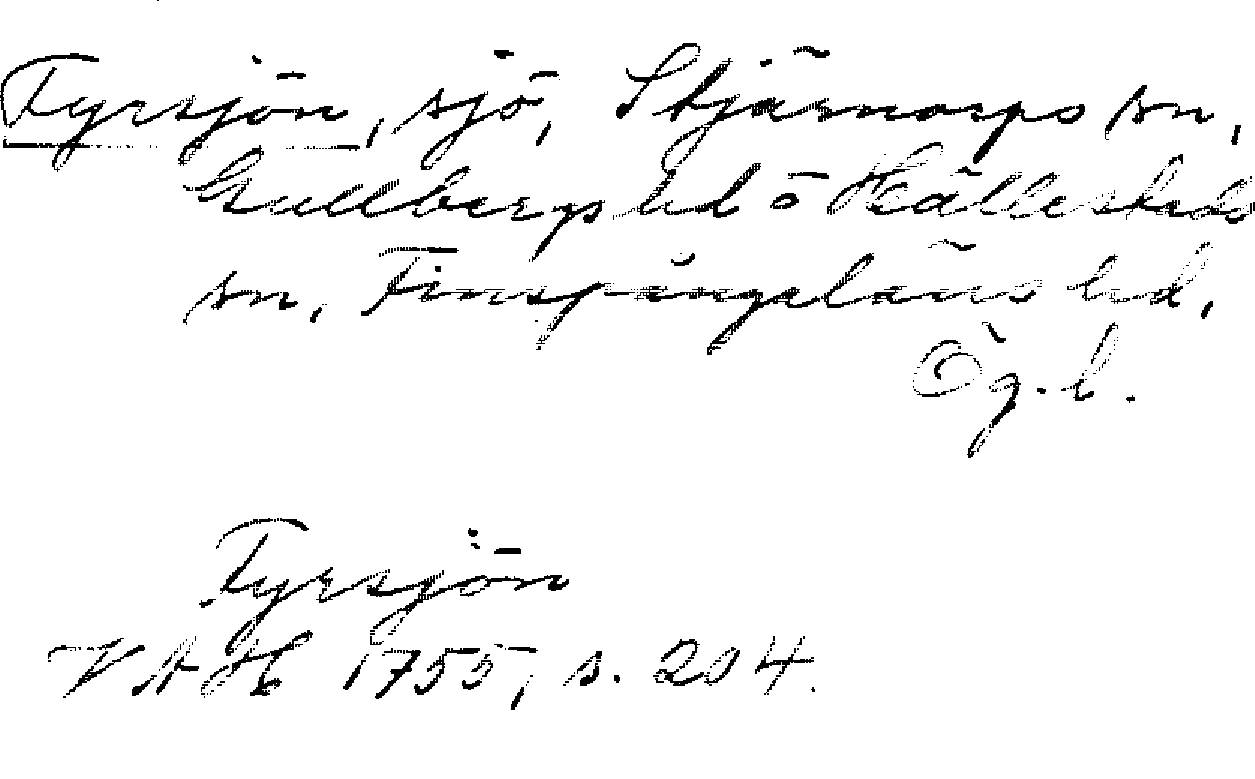 Tyrsjön, sjö, Stjärnorps sn,
Gullbergs hd o Hällestads
sn, Finspångaläns hd,
Ög. l.
Tyrsjön
VAH 1755, s. 204.